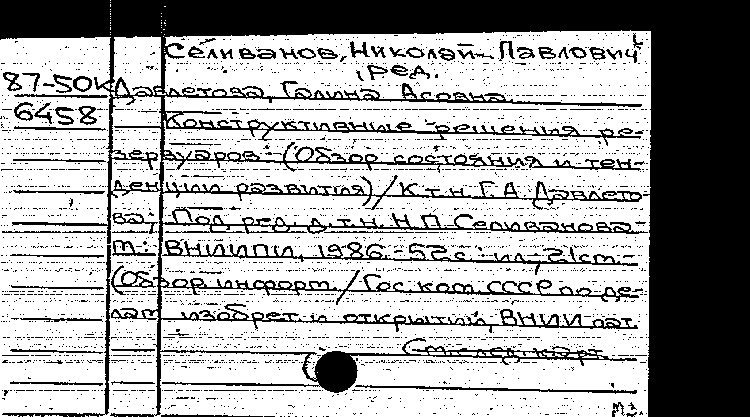 Селиванов, Николай Павлович
, ред.
87-50К Давлетова, Галина Асовна.
6458 Конструктивные решения ре-
зервуаров: (Обзор состояния и тен-
денции развития) / К.т.н. Г.А. Давлето-
ва; Под ред. д.т.н. Н.П. Селиванова.-
М.: ВНИИПИ, 1986.-52с.: ил.; 21см.-
(Обзор информ. / Гос. ком. СССР по де-
лам изобрет. и открытий, ВНИИ пат.
(См. след. карт.